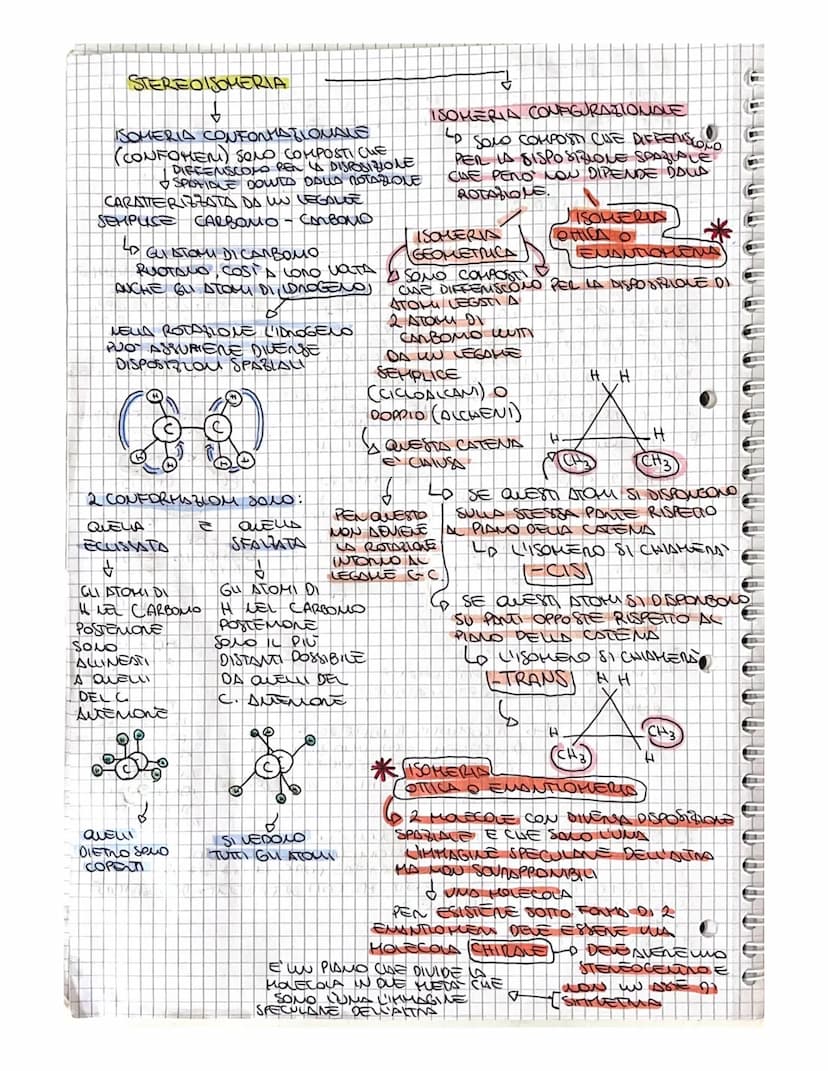 STEREOISOMERIA
ISOMERIA CONFORMAZIONALE
(CONFOMERI) SONO COMPOSTI CHE
DIFFERISCONO PER LA DISPOSIZIONE
SPAZIALE DOVUTA DALLA ROTAZIONE
CARATTERIZZATA DA UN LEGAME
SEMPLICE CARBONIO - CARBONIO
GLI ATOMI DI CARBONIO
RUOTANO, COSÌ A LORO VOLTA
ANCHE GLI ATOMI DI IDROGENO
NELLA ROTAZIONE L'IDROGENO
PUO' ASSUMERE DIVERSE
DISPOSIZIONI SPAZIALI
H H
C C
H H H H
2 CONFORMAZIONI SONO:
QUELLA E QUELLA
ECLISSATA SFALZATA
GLI ATOMI DI
H NEL CARBONIO
POSTERIORE
SONO
ALLINEATI
A QUELLI
DEL C.
ANTERIORE
GLI ATOMI DI
H NEL CARBONIO
POSTERIORE
SONO IL PIÙ
DISTANTI POSSIBILE
DA QUELLI DEL
C. ANTERIORE
C
C
QUELLI
DIETRO SONO
COPERTI
SI VEDONO
TUTTI GLI ATOMI
ISOMERIA CONFIGURAZIONALE
SONO COMPOSTI CHE DIFFERISCONO
PER LA DISPOSIZIONE SPAZIALE
CHE PERO' NON DIPENDE DALLA
ROTAZIONE.
ISOMERIA
GEOMETRICA
ISOMERIA
OTTICA O
ENANTIOMERIA
SONO COMPOSTI
CHE DIFFERISCONO PER LA DISPOSIZIONE DI
ATOMI LEGATI A
2 ATOMI DI
CARBONIO UNITI
DA UN LEGAME
SEMPLICE
(CICLOALCANI) O
DOPPIO (ALCHENI)
QUESTA CATENA
E' CHIUSA
PER QUESTO
NON AVVIENE
LA ROTAZIONE
INTORNO AL
LEGAME C-C.
H H
H H
CH3 CH3
SE QUESTI ATOMI SI DISPONGONO
SULLA STESSA PARTE RISPETTO
AL PIANO DELLA CATENA
L'ISOMERO SI CHIAMERA'
-CIS
SE QUESTI ATOMI SI DISPONGONO
SU PARTI OPPOSTE RISPETTO AL
PIANO DELLA CATENA
L'ISOMERO SI CHIAMERÀ
-TRANS
H H
H CH3
CH3 H
ISOMERIA
OTTICA O ENANTIOMERIA
2 MOLECOLE CON DIVERSA DISPOSIZIONE
SPAZIALE E CHE SONO L'UNA
L'IMMAGINE SPECULARE DELL'ALTRA
MA NON SOVRAPPONIBILI
UNA MOLECOLA
PER ESISTERE SOTTO FORMA DI 2
ENANTIOMERI DEVE ESSERE UNA
MOLECOLA CHIRALE DEVE AVERE UNO
STEREOCENTRO E
NON UN ASSE DI
SIMMETRIA
E' UN PIANO CHE DIVIDE LA
MOLECOLA IN DUE META' CHE
SONO L'UNA L'IMMAGINE
SPECULARE DELL'ALTRA